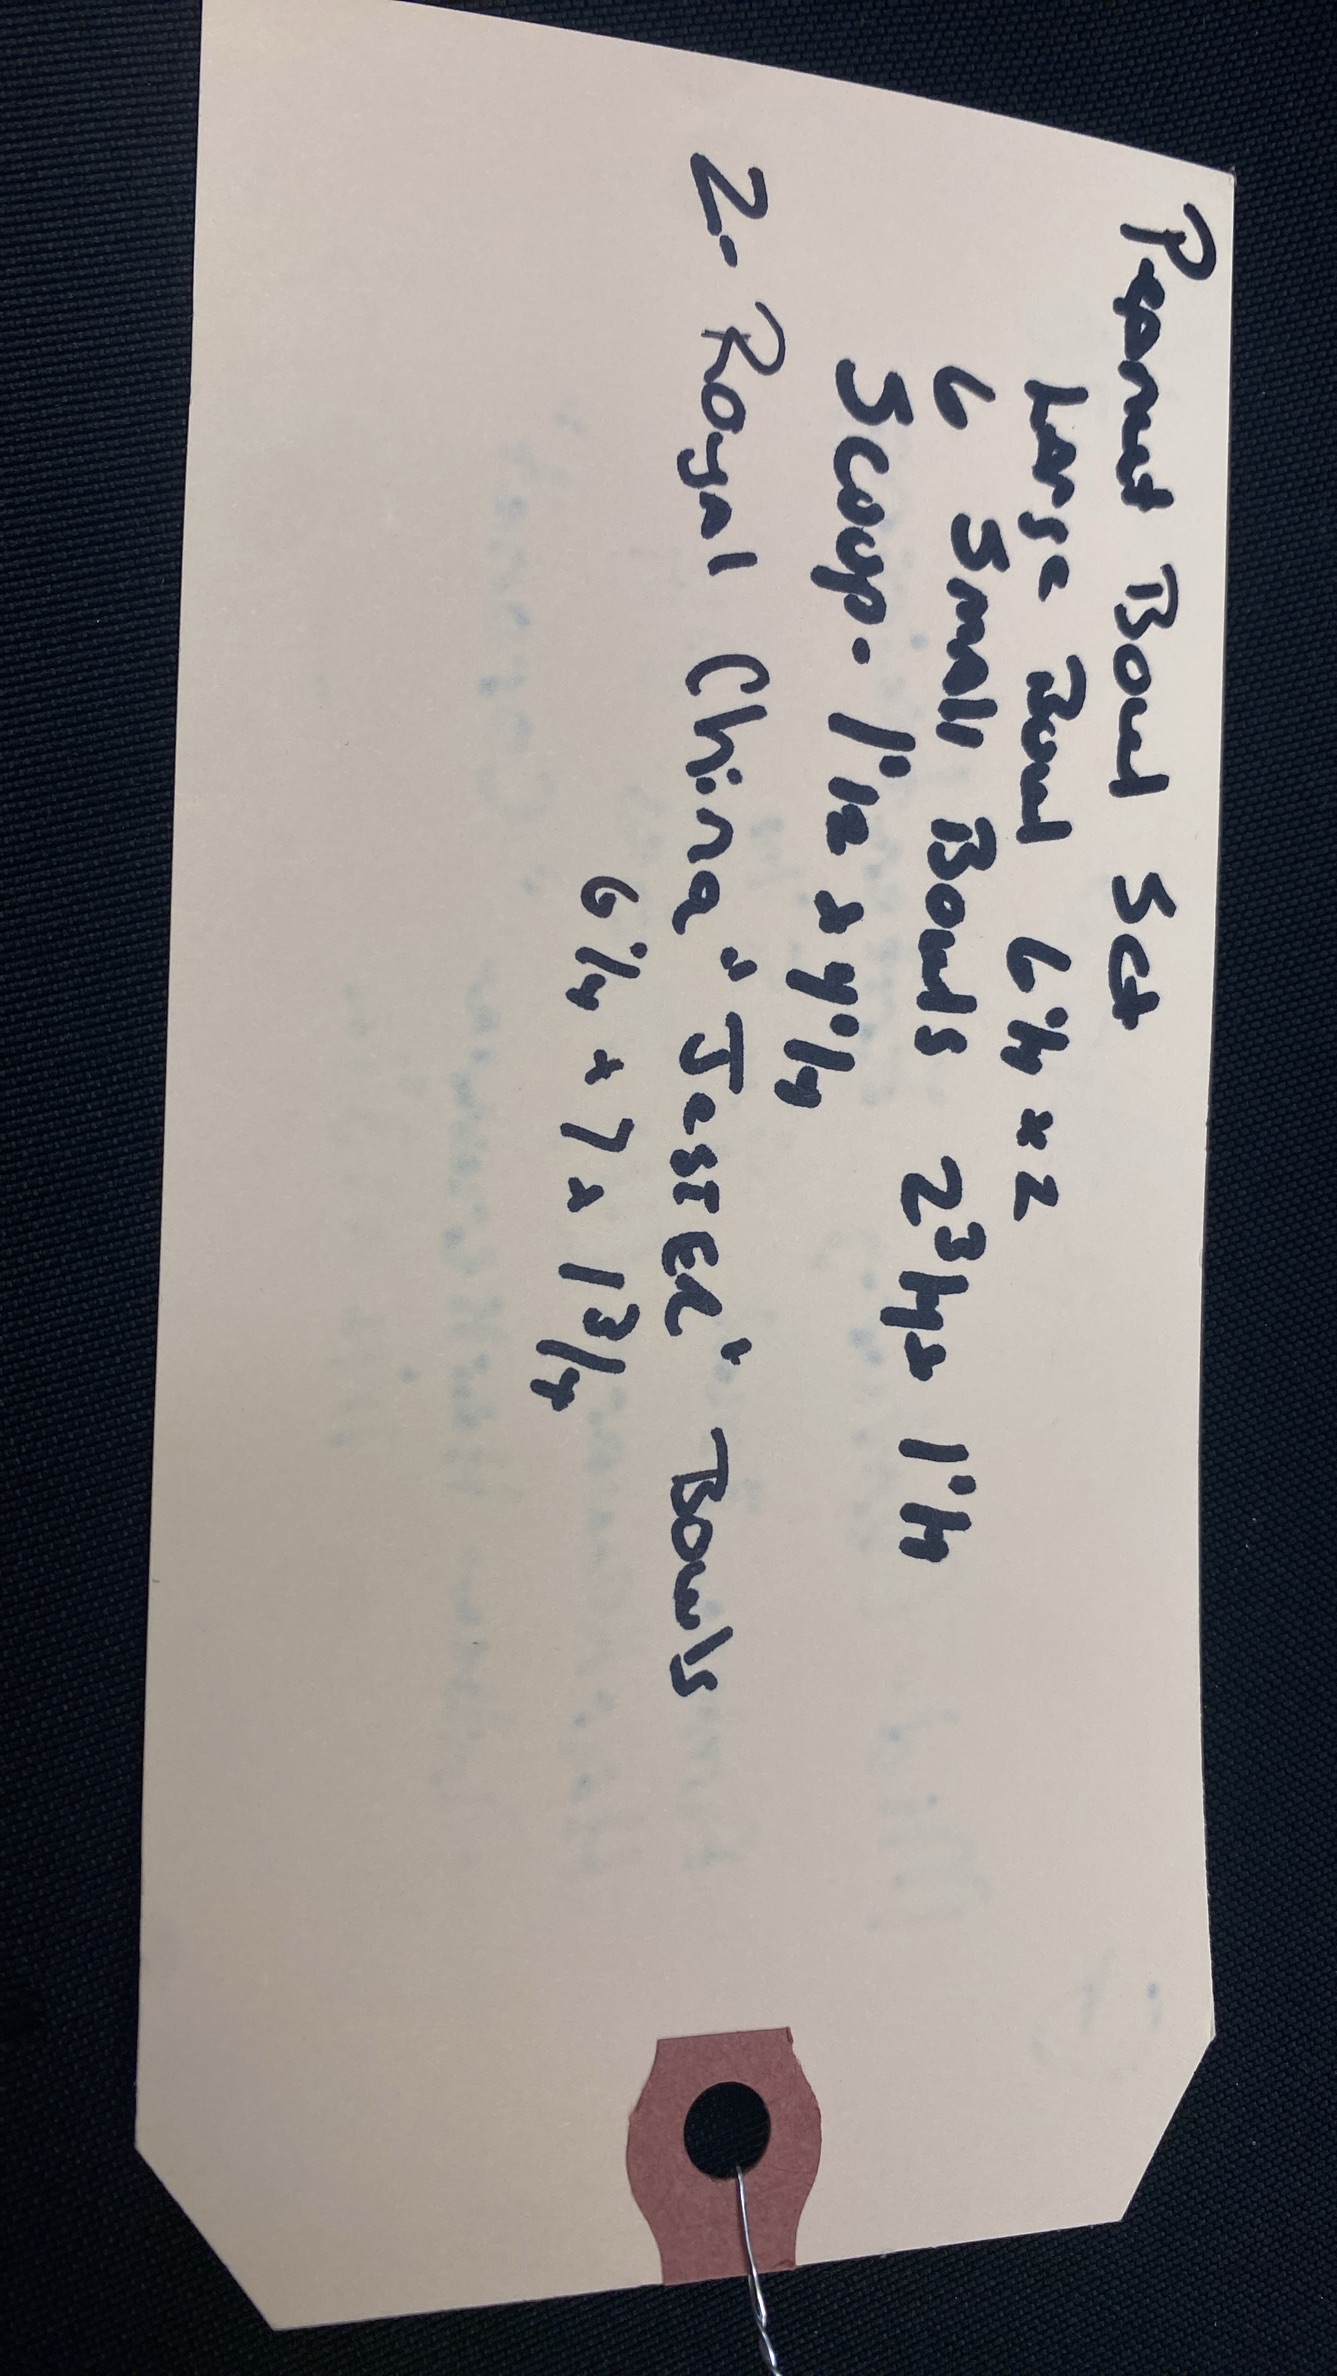 Peanut Bowl Set
Large Bowl 6 1/2 x 2
6 Small Bowls 2 3/4 x 1 1/4
Scoop. 1 1/2 x 4 1/4
2- Royal China "Jester" Bowls
6 1/4 x 7 x 1 3/4